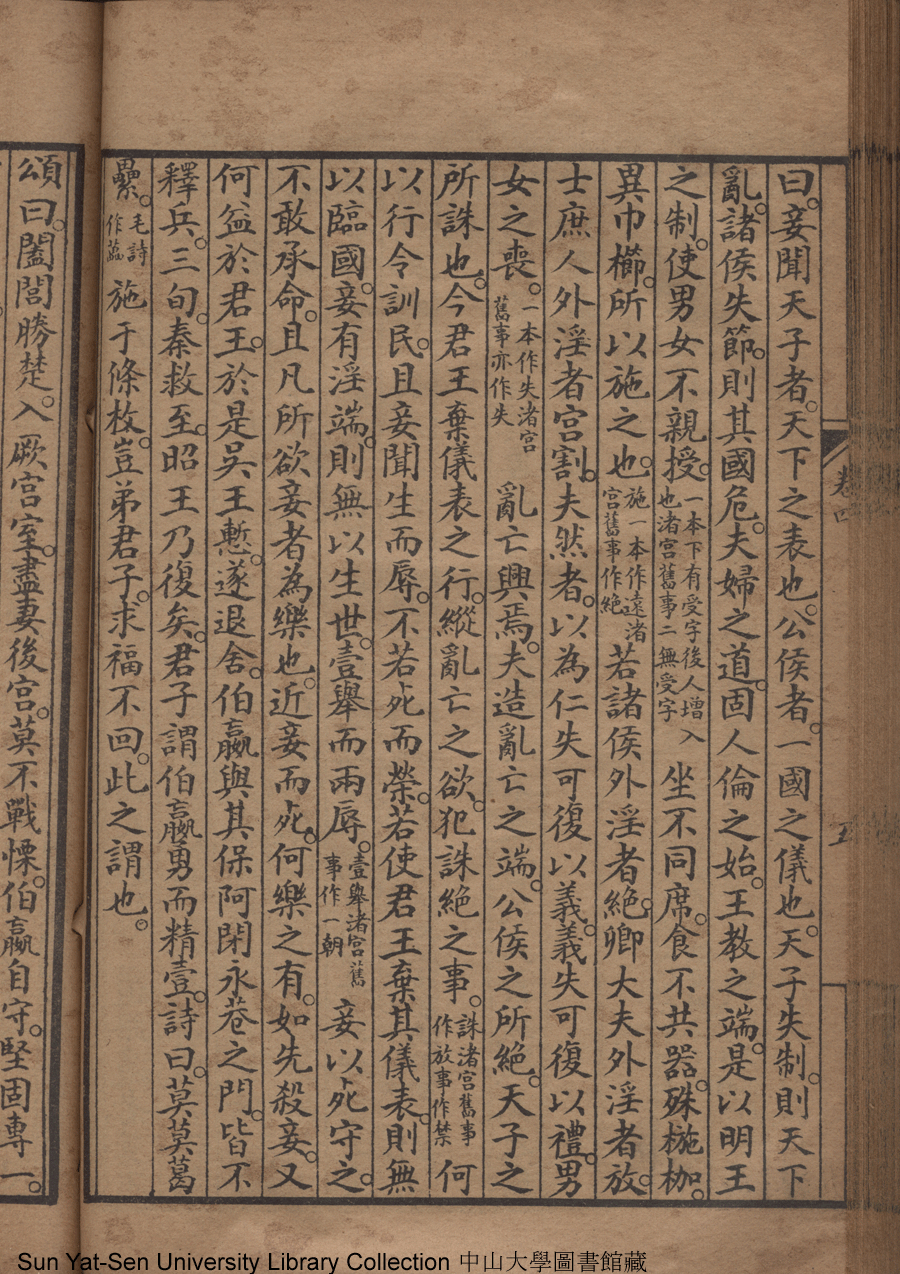 曰。妾聞天子者。天下之表也。公侯者。一國之儀也。天子失制。則天下
亂。諸侯失節。則其國危。夫婦之道。固人倫之始。王教之端。是以明王
之制。使男女不親授。一本下有受字後人增入也渚宮舊事二無受字坐不同席。食不共器。殊椸枷。
異巾櫛。所以施之也。施一本作遠渚宮舊事作絶若諸侯外淫者絶。卿大夫外淫者放。
士庶人外淫者宮割。夫然者。以為仁失可復以義。義失可復以禮。男
女之喪。一本作失渚宮舊事亦作失亂亡興焉。夫造亂亡之端。公侯之所絶。天子之
所誅也。今君王棄儀表之行。縱亂亡之欲。犯誅絶之事。誅渚宮舊事作放事作禁何
以行令訓民。且妾聞生而辱。不若死而榮。若使君王棄其儀表。則無
以臨國。妾有淫端。則無以生世。壹舉而兩辱。壹舉渚宮舊事作一朝妾以死守之。
不敢承命。且凡所欲妾者為樂也。近妾而死。何樂之有。如先殺妾。又
何益於君王。於是吳王慙。遂退舍。伯嬴與其保阿閉永巷之門。皆不
釋兵。三旬。秦救至。昭王乃復矣。君子謂伯嬴勇而精壹。詩曰。莫莫葛
虆。毛詩作藟施于條枚。豈弟君子。求福不回。此之謂也。
頌曰。闔閭勝楚。入厥宮室。盡妻後宮。莫不戰慄。伯嬴自守。堅固專一。
卷四
五
Sun Yat-Sen University Library Collection 中山大學圖書館藏